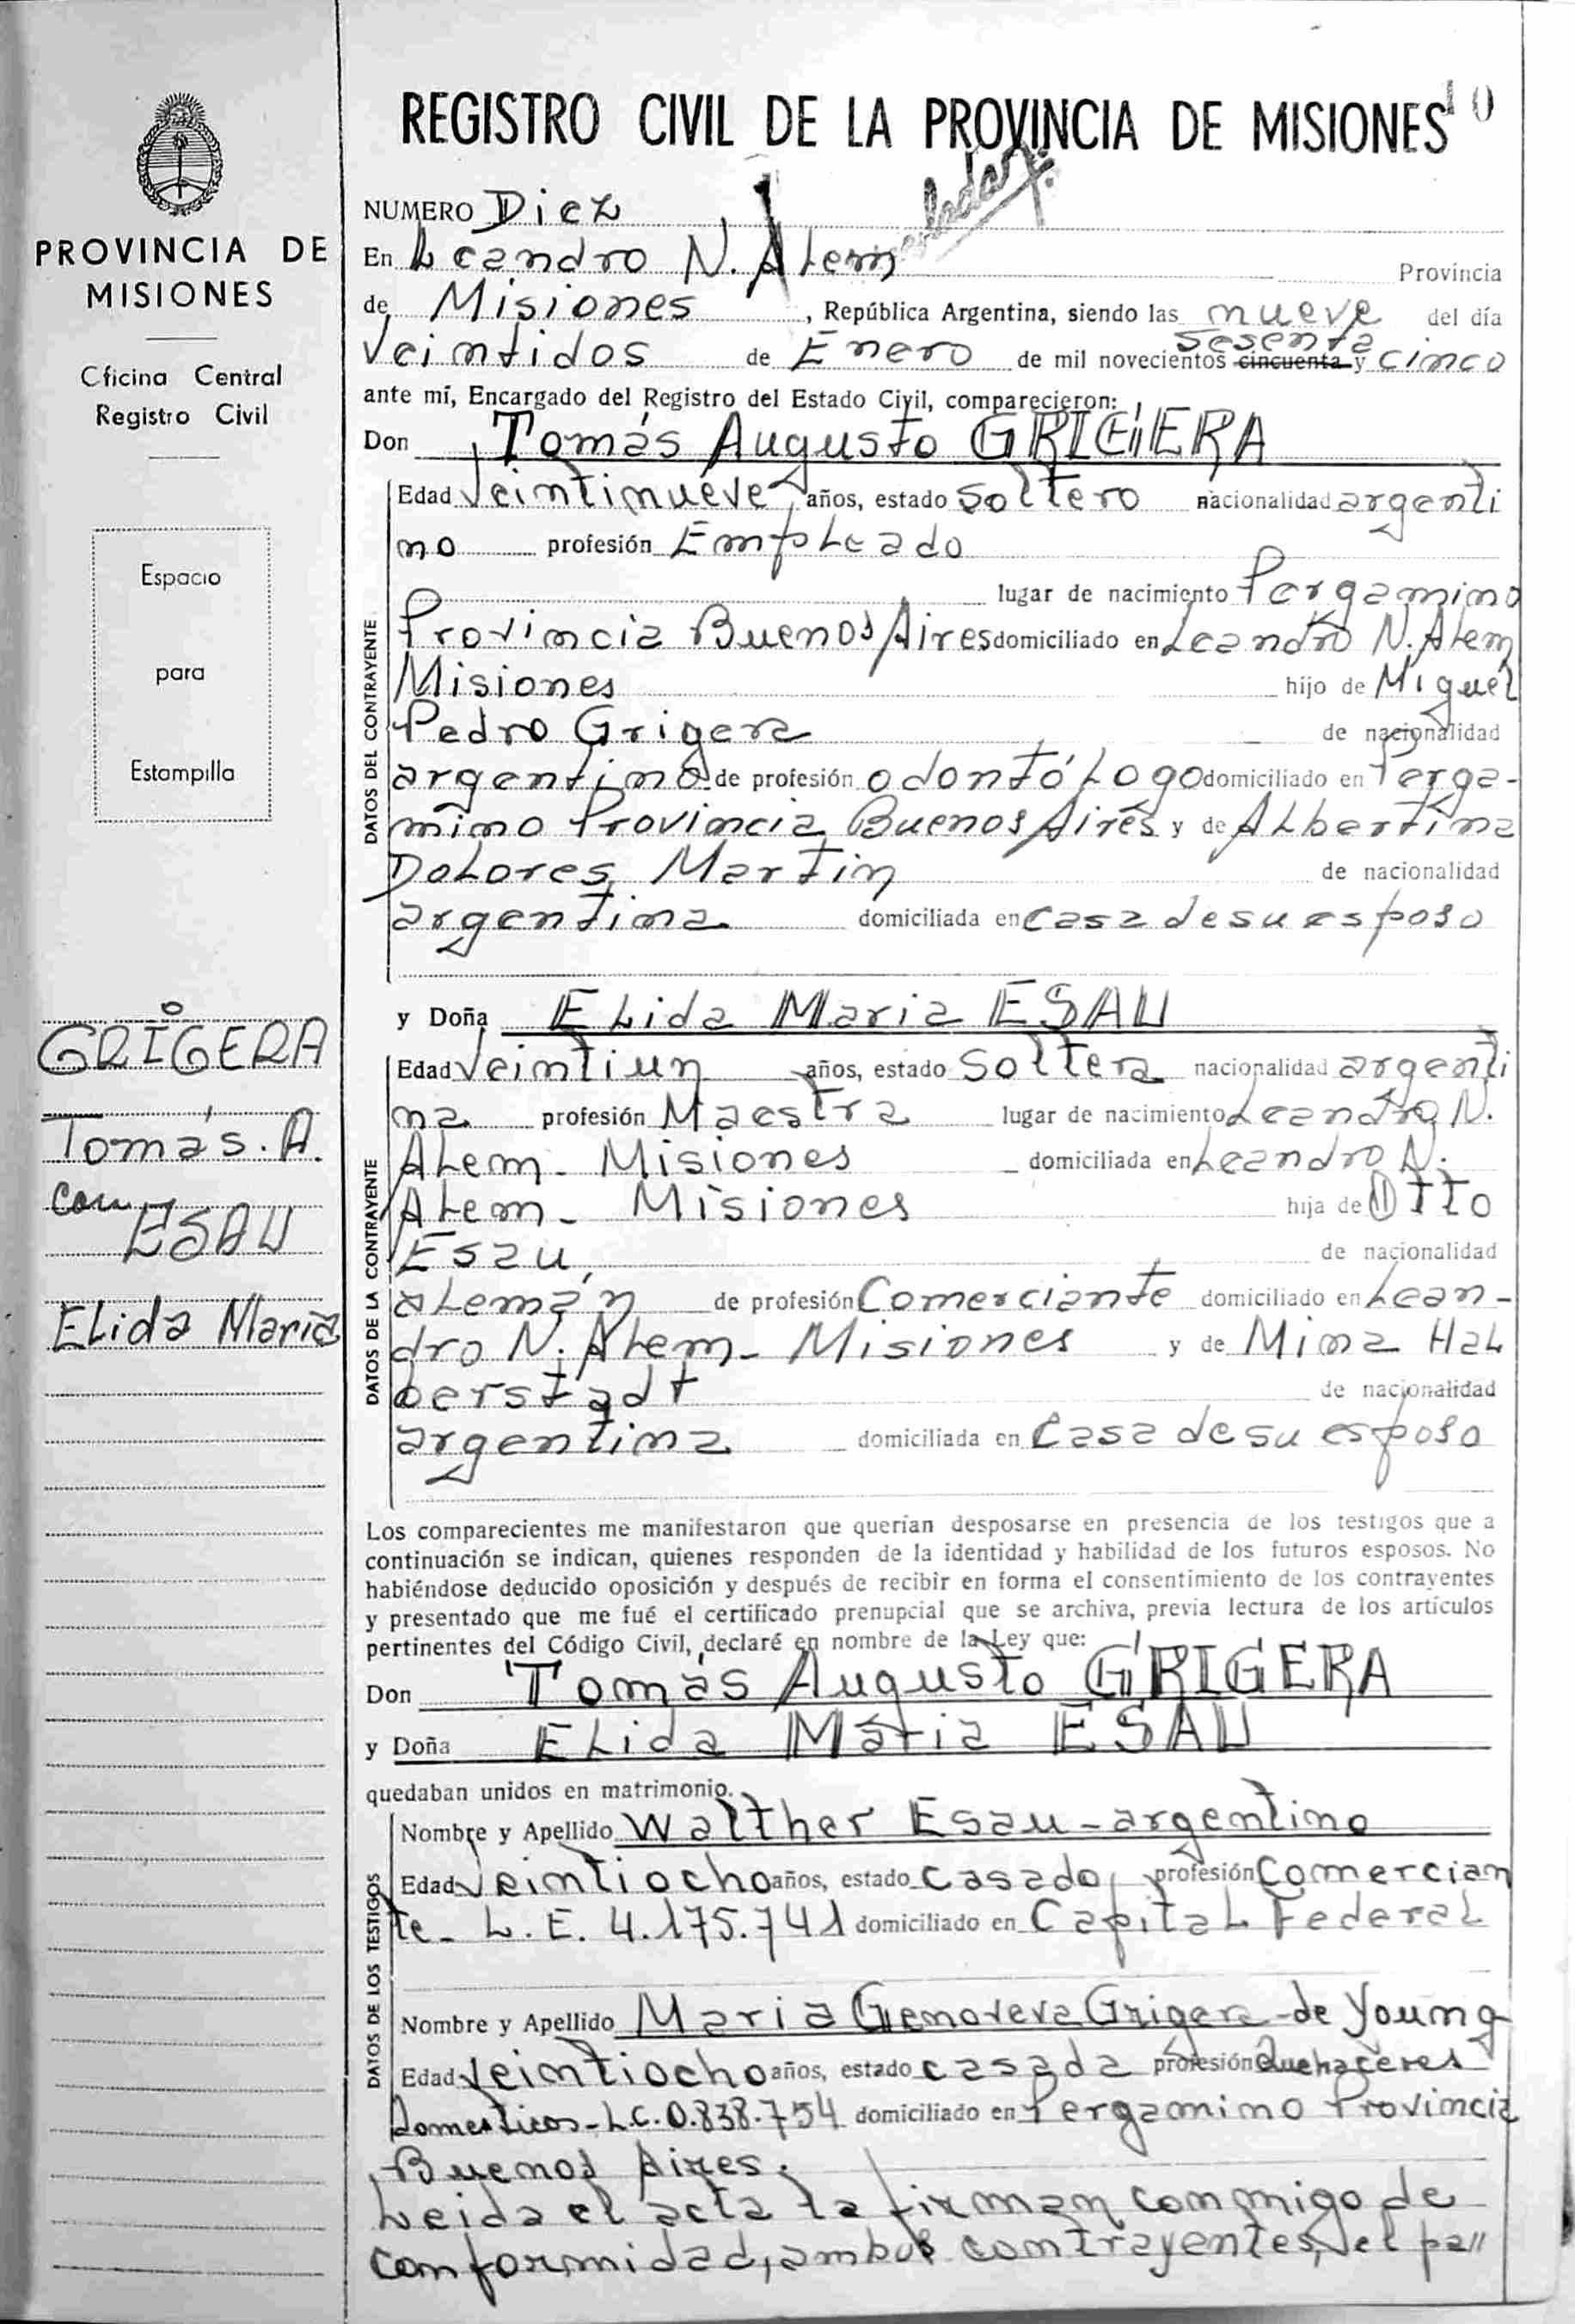 REGISTRO CIVIL DE LA PROVINCIA DE MISIONES 10
PROVINCIA DE
MISIONES
Oficina Central
Registro Civil
Espacio
para
Estampilla
GRIGERA
Tomás. A.
con
ESAU
Elida Maria
NUMERO Diez
En Leandro N. Alem Provincia
de Misiones, República Argentina, siendo las nueve del día
Veintidos de Enero de mil novecientos sesenta cincuenta y cinco
ante mí, Encargado del Registro del Estado Civil, comparecieron:
Don Tomás Augusto GRIGERA
DATOS DEL CONTRAYENTE
Edad Veintinueve años, estado soltero nacionalidad argenti
no profesión Empleado
lugar de nacimiento Pergamino
Provincia Buenos Aires domiciliado en Leandro N. Alem
Misiones hijo de Miguel
Pedro Grigera de nacionalidad
argentino de profesión odontólogo domiciliado en Perga-
mino Provincia Buenos Aires y de Albertina
Dolores Martin de nacionalidad
argentina domiciliada en Casa de su esposo
y Doña Elida Maria ESAU
DATOS DE LA CONTRAYENTE
Edad Veintiun años, estado soltera nacionalidad argenti
na profesión Maestra lugar de nacimiento Leandro N.
Alem - Misiones domiciliada en Leandro N.
Alem - Misiones hija de Otto
Esau de nacionalidad
alemán de profesión Comerciante domiciliado en Lean-
dro N. Alem - Misiones y de Mina Hal
berstadt de nacionalidad
argentina domiciliada en Casa de su esposo
Los comparecientes me manifestaron que querían desposarse en presencia de los testigos que a
continuación se indican, quienes responden de la identidad y habilidad de los futuros esposos. No
habiéndose deducido oposición y después de recibir en forma el consentimiento de los contrayentes
y presentado que me fué el certificado prenupcial que se archiva, previa lectura de los artículos
pertinentes del Código Civil, declaré en nombre de la Ley que:
Don Tomás Augusto GRIGERA
y Doña Elida Maria ESAU
quedaban unidos en matrimonio.
DATOS DE LOS TESTIGOS
Nombre y Apellido Walther Esau - argentino
Edad Veintiocho años, estado casado profesión Comercian
te - L. E. 4.175.741 domiciliado en Capital Federal
Nombre y Apellido Maria Genoveva Grigera de Young
Edad Veintiocho años, estado casada profesión Quehaceres
domesticos - L.C. 0.838.754 domiciliado en Pergamino Provincia
Buenos Aires.
Leida el acta la firman conmigo de
conformidad, ambos contrayentes, el pa//